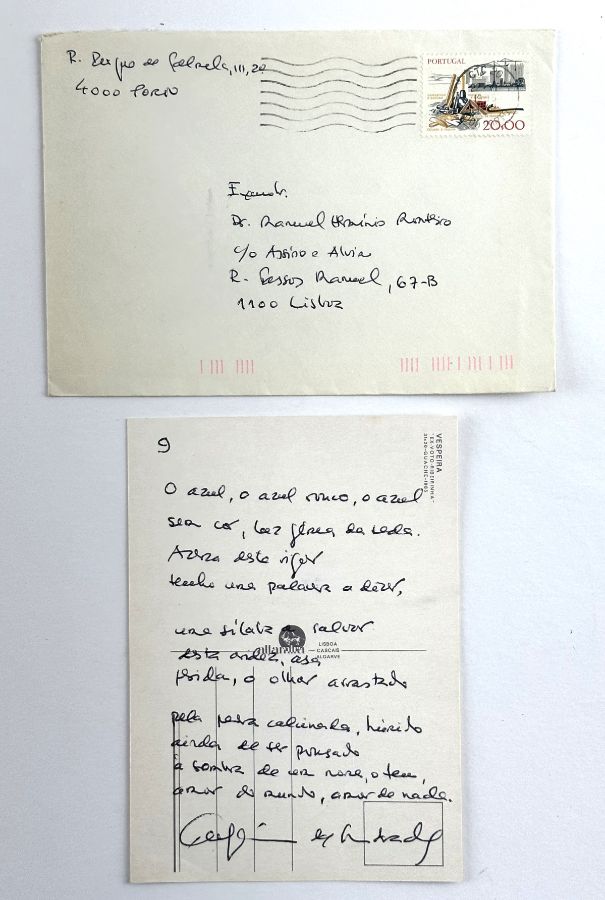 R. Duque de Saldanha, 111, 2º
4000 PORTO
PORTUGAL
20.00
Exmo Sr.
Dr. Manuel Hermínio Monteiro
c/o Assírio e Alvim
R. Passos Manuel, 67-B
1100 Lisboa
VESPEIRA
"EX-VOTO-RIBEIRINHA"
GUACHE-1985
9
O azul, o azul rouco, o azul
sem cor, luz gémea da sede.
Acerca deste rigor
tenho uma palavra a dizer,
uma sílaba a salvar
desta aridez, asa
ferida, o olhar arrastado
pela pedra calcinada, húmido
ainda de ter pousado
à sombra de um nome, o teu,
amor do mundo, amor de nada.
altamira
LISBOA
CASCAIS
ALGARVE
Eugénio de Andrade